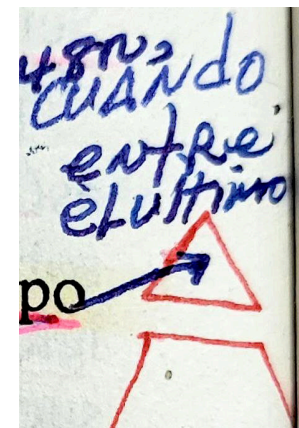 48n,
CUANDO
entre
èlultimo
po